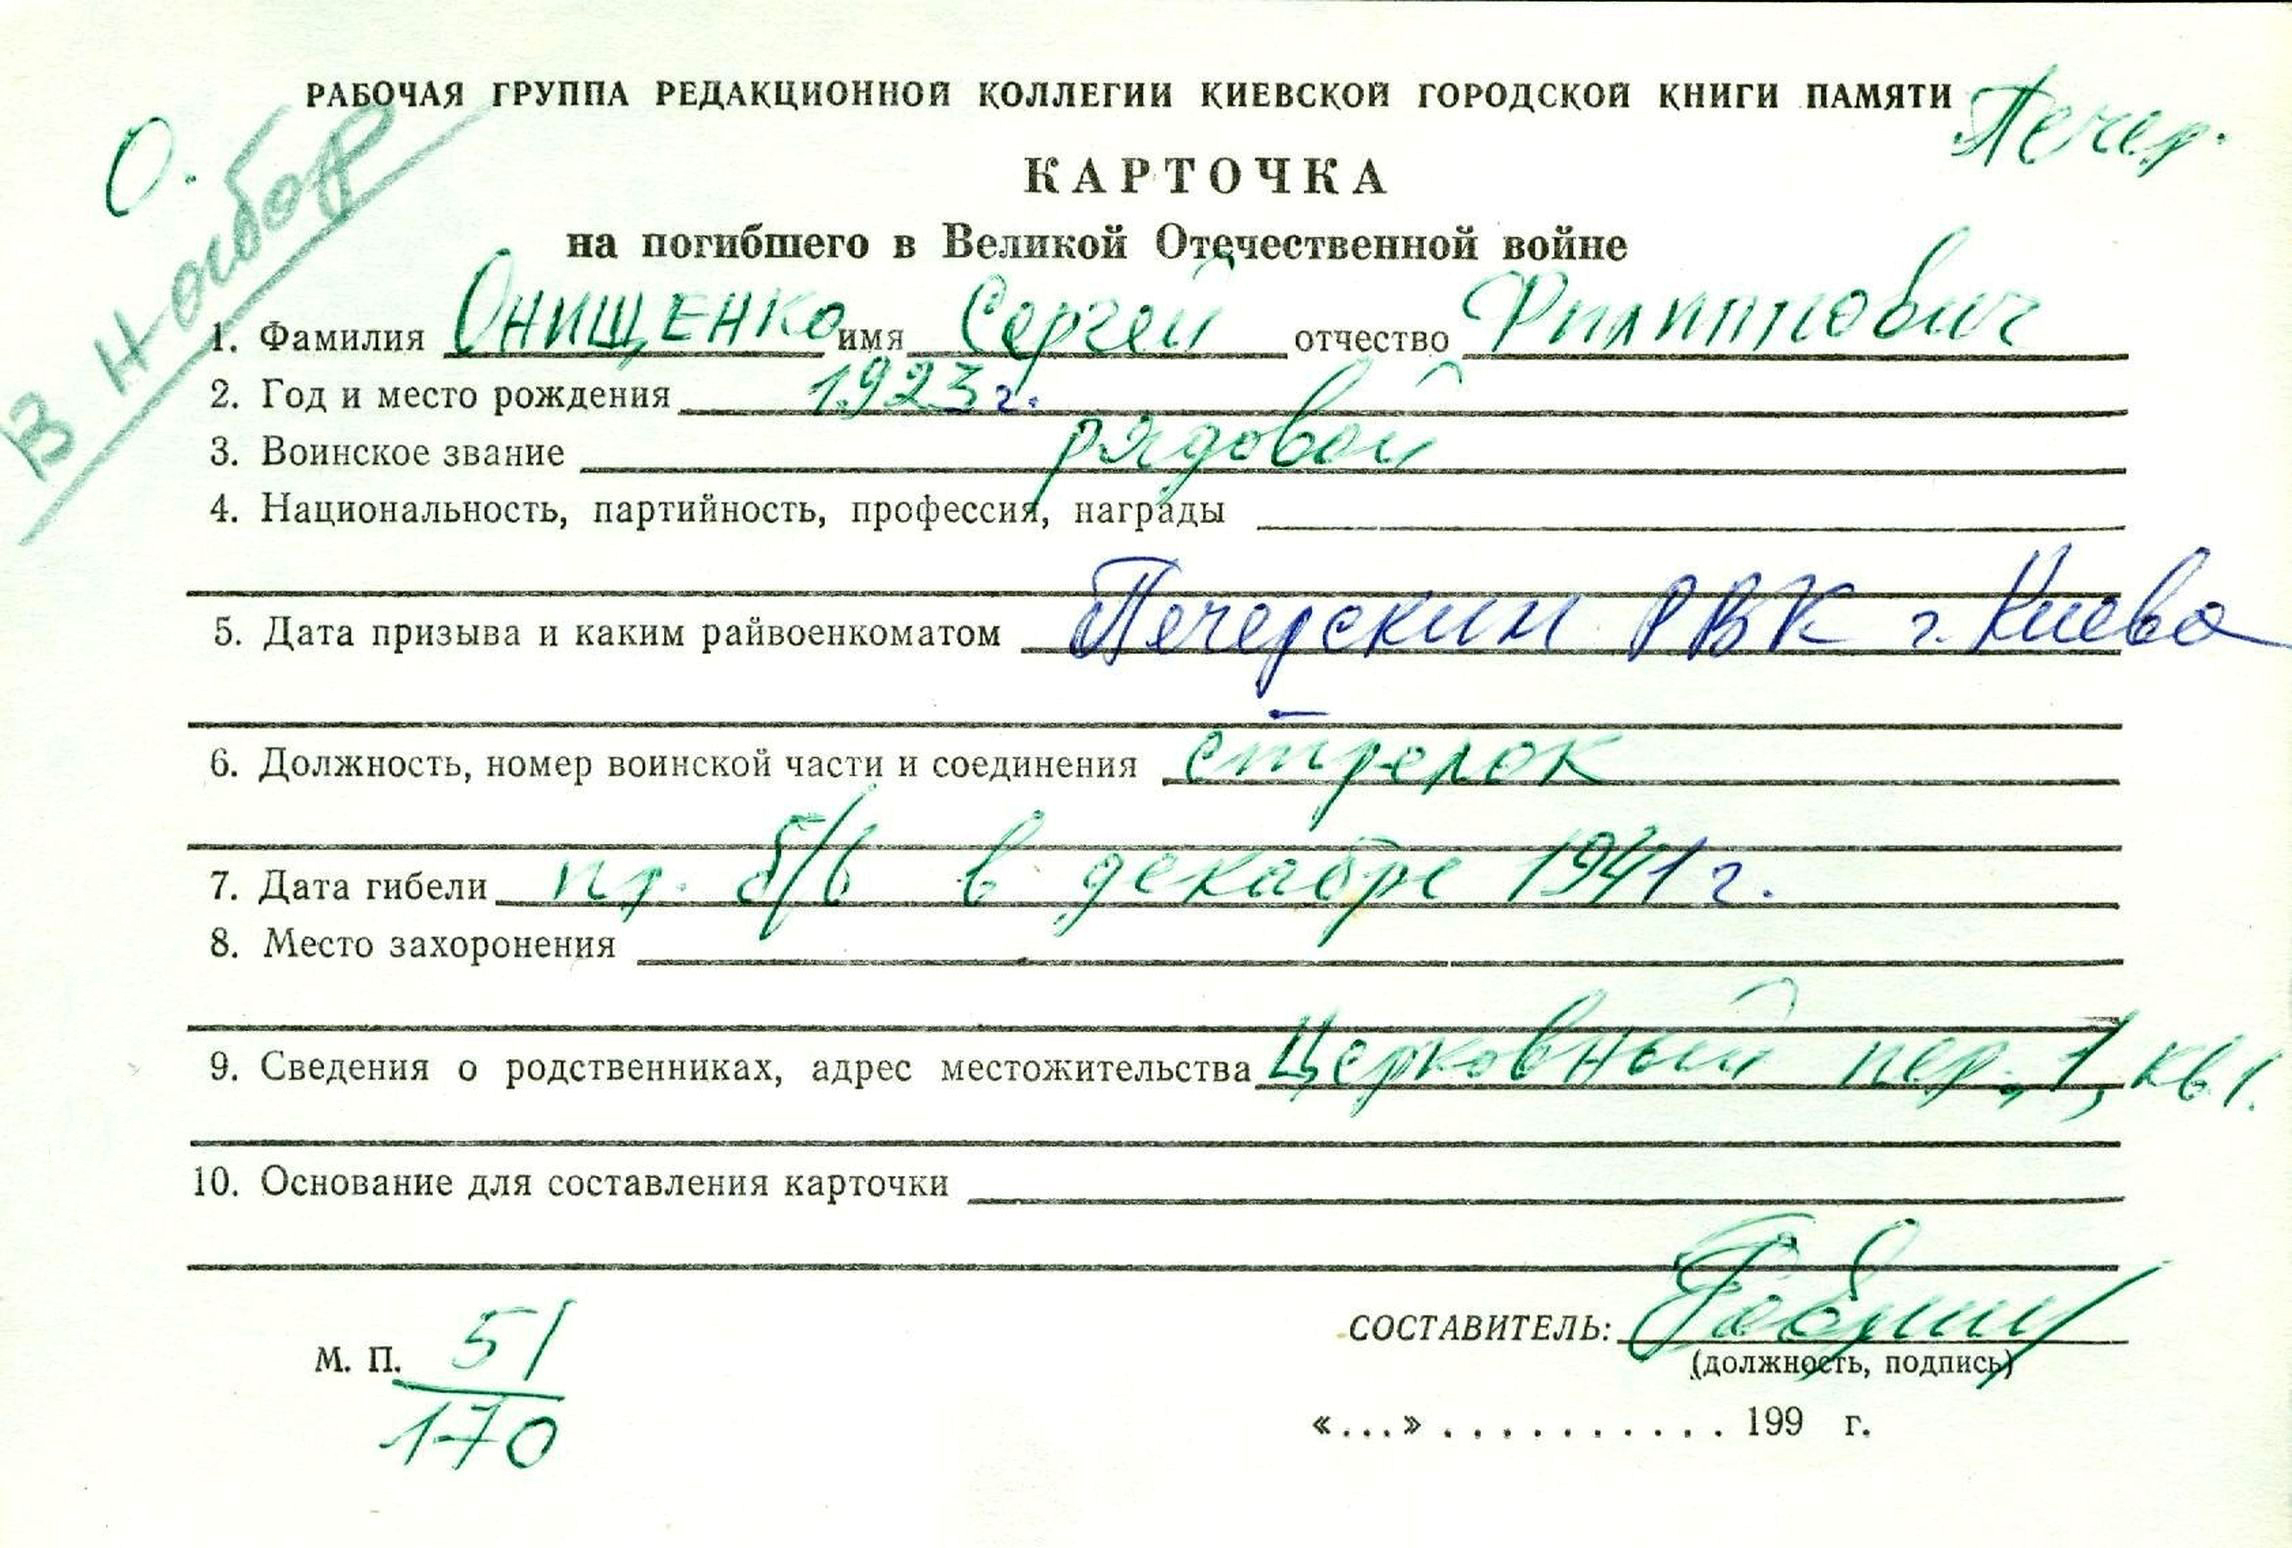 РАБОЧАЯ ГРУППА РЕДАКЦИОННОЙ КОЛЛЕГИИ КИЕВСКОЙ ГОРОДСКОЙ КНИГИ ПАМЯТИ
О. Печер.
В набор
КАРТОЧКА
на погибшего в Великой Отечественной войне
1. Фамилия Онищенко имя Сергей отчество Филиппович
2. Год и место рождения 1923 г.
3. Воинское звание рядовой
4. Национальность, партийность, профессия, награды
5. Дата призыва и каким райвоенкоматом Печерским РВК г. Киева
6. Должность, номер воинской части и соединения стрелок
7. Дата гибели пр. б/в в декабре 1941 г.
8. Место захоронения
9. Сведения о родственниках, адрес местожительства Церковный пер., 1, кв. 1.
10. Основание для составления карточки
СОСТАВИТЕЛЬ:
(должность, подпись)
М. П. 51
170
«...» ........... 199 г.